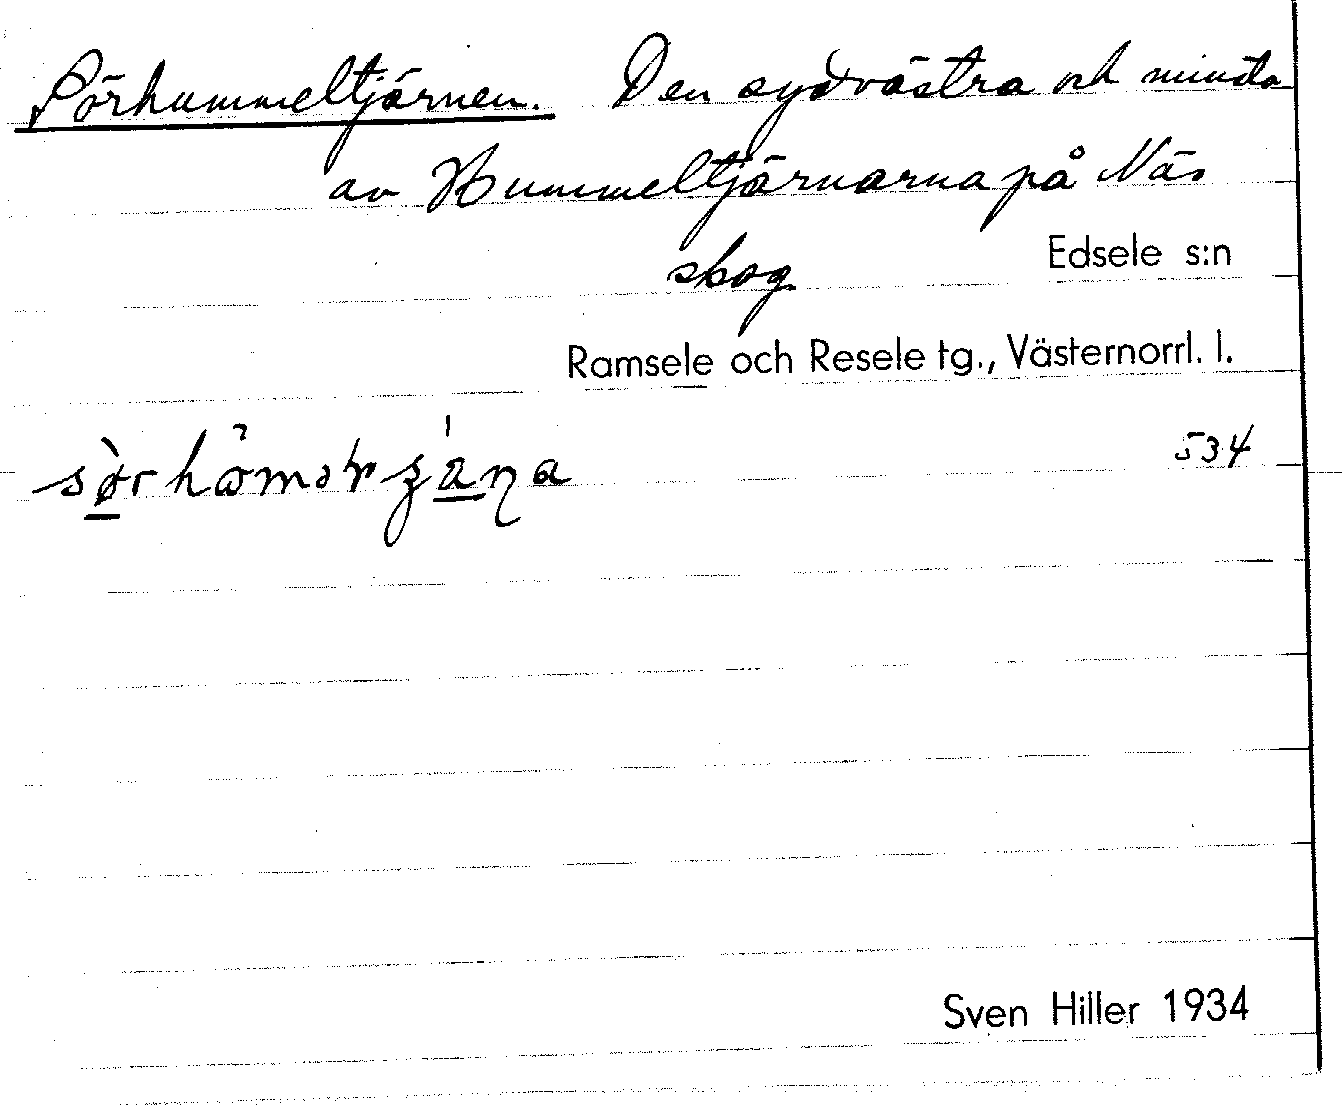 Sörhummeltjärnen. Den sydvästra och minsta
av Hummeltjärnarna på Näs
skog
Edsele s:n
Ramsele och Resele tg., Västernorrl. l.
534
Sven Hiller 1934